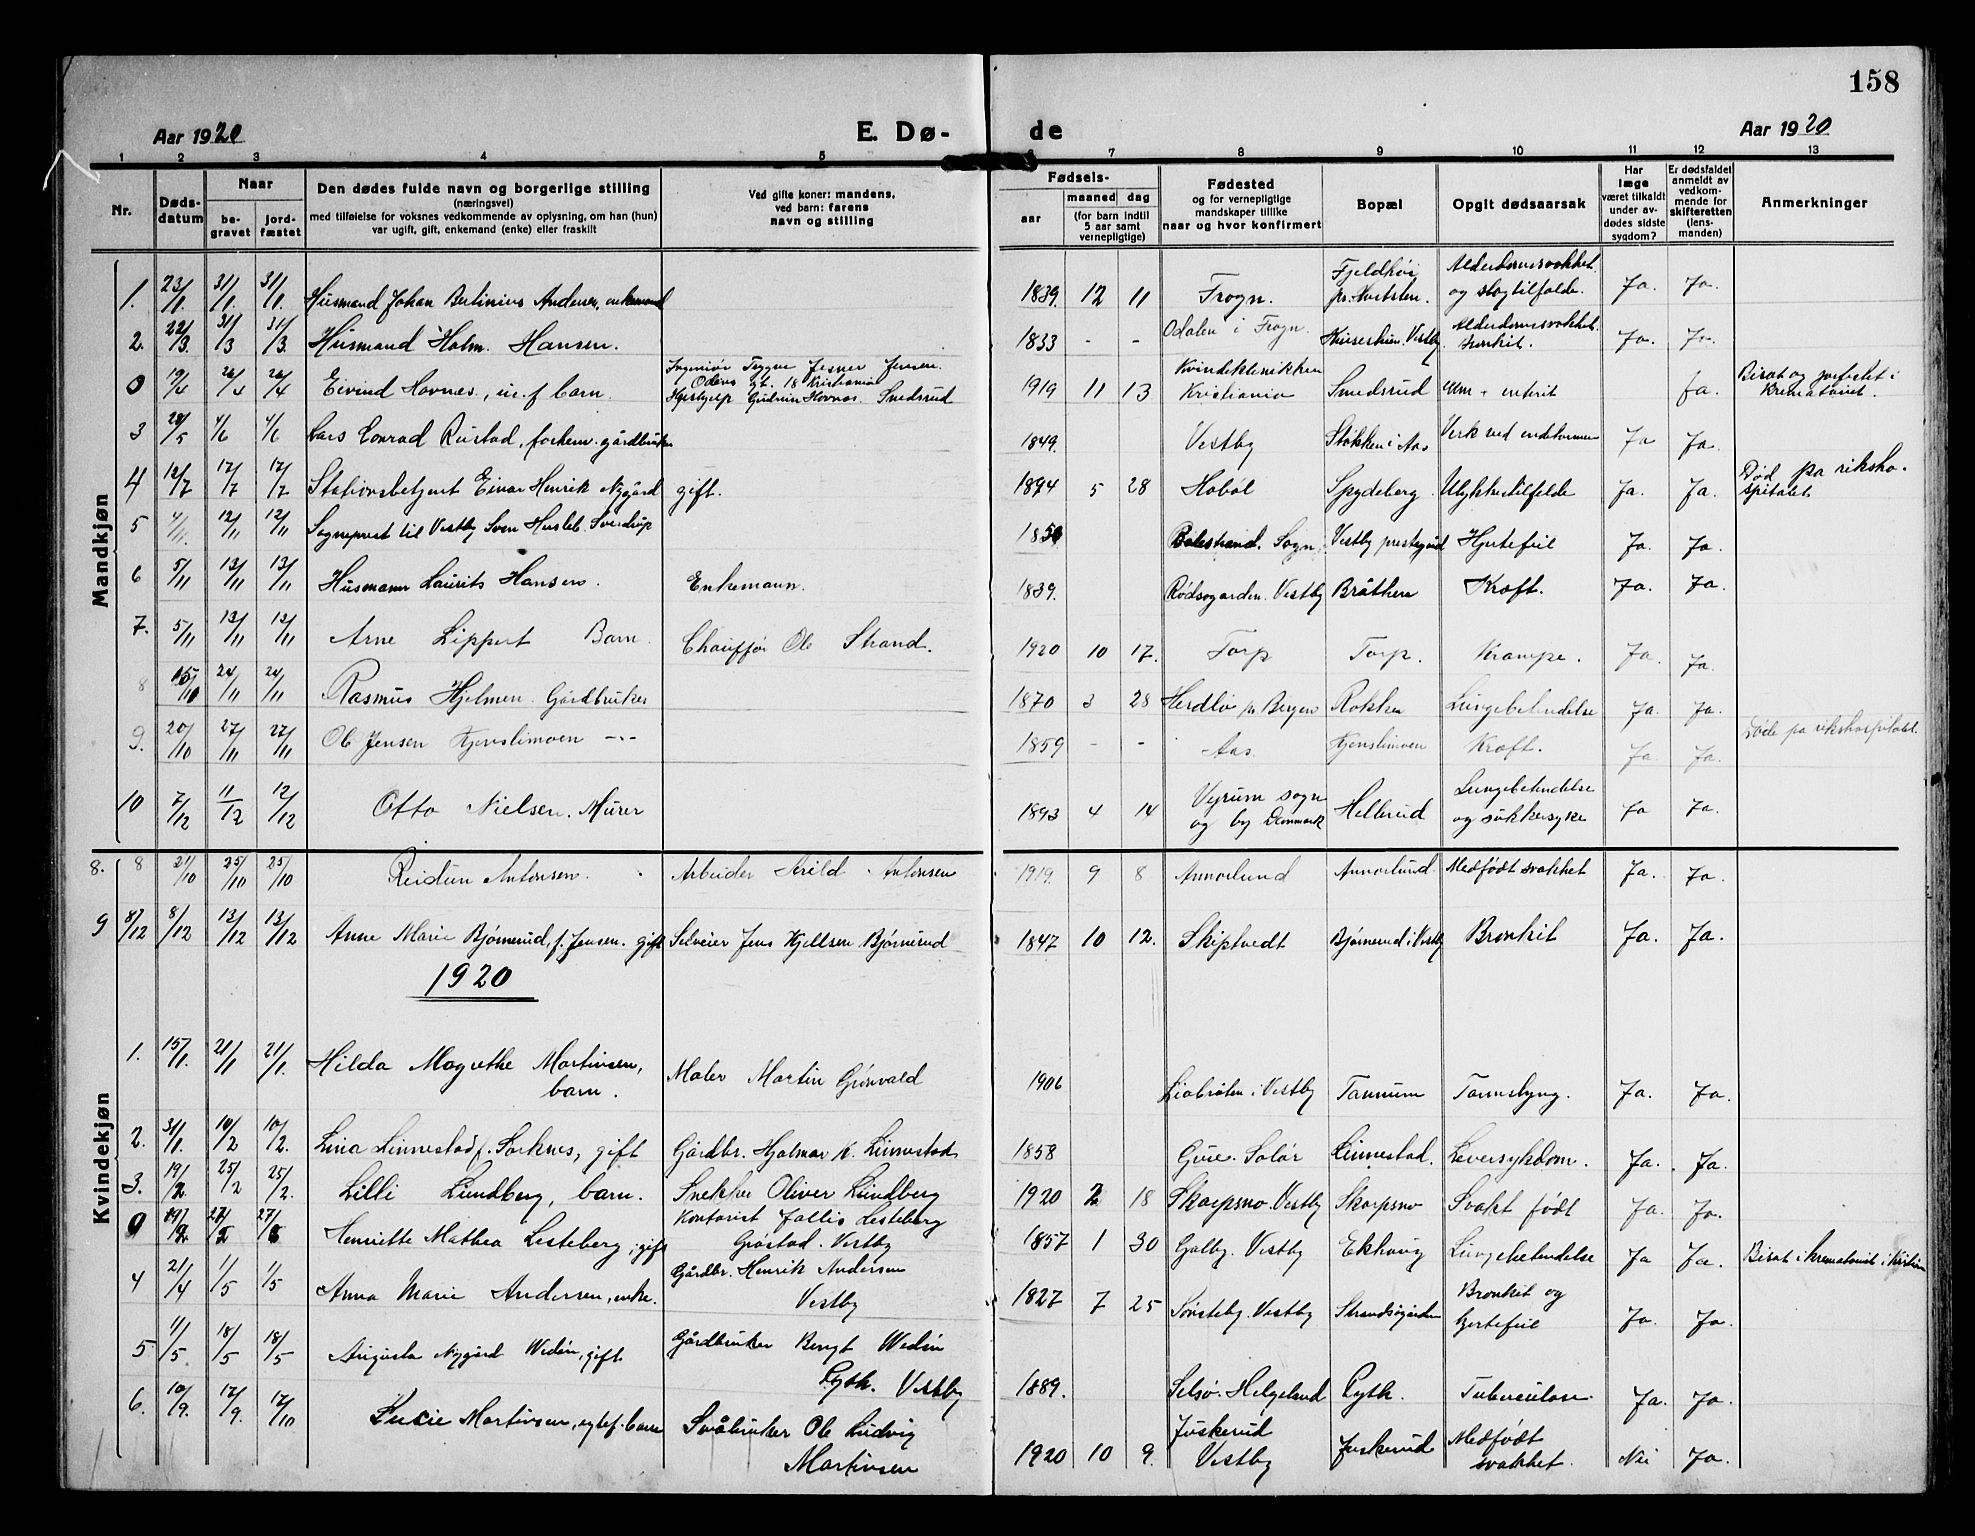 158
Aar 1920 E. Dø- de Aar 1920
1 2 3 4 5 6 7 8 9 10 11 12 13
Nr. Døds-datum Naar be-gravet jord-fæstet Den dødes fulde navn og borgerlige stilling (næringsvei) med tilføielse for voksnes vedkommende av oplysning, om han (hun) var ugift, gift, enkemand (enke) eller fraskilt Ved gifte koner: mandens, ved barn: farens navn og stilling Fødsels- aar maaned dag (for barn indtil 5 aar samt vernepligtige) Fødested og for vernepligtige mandskaper tillike naar og hvor konfirmert Bopæl Opgit dødsaarsak Har læge været tilkaldt under av-dødes sidste sygdom? Er dødsfaldet anmeldt av vedkom-mende for skifteretten (lens-manden) Anmerkninger
Mandkjøn
1. 23/1. 31/1. 31/1. Husmand Johan Bertinius Andersen, enkemand 1839. 12 11 Frogn. Alderdomssvakket og slagtilfælde. Ja. Ja.
2. 22/3. 31/3 31/3. Husmand Halm. Hansen. 1833 - - Odalen i Frogn. Vestby. Alderdomssvakket. Bronkit. Ja. Ja.
0 19/4 26/4 26/4 Eivind Hovnes, u.f barn. Ingeniør Trygve Jesner Jensen. Odens gt. 18 Kristiania Gudrun Hovnes. Smedsrud 1919 11 13 Kvindeklinikken Kristiania Smedsrud enterit Ja. Bisat og jordfestet i Krematoriet.
3 28/5 4/6 4/6 Lars Conrad Rustad, forhenv. gårdbruker 1849. Vestby Støkken i Aas Verk ved endetarmen Ja Ja.
4 12/7 17/7 17/7 Stationsbetjent Einar Henrik Nygård gift. 1894 5 28 Hobøl Spydeberg. Ulykkestilfelde Ja. Ja. Død pa riksho-spitalet.
5 4/11. 12/11 12/11 Sogneprest til Vestby Sven Husleb. Sverdrup 1850 Balestrand. Sogn. Vestby prestegård Hjertefeil Ja. Ja.
6 5/11 13/11 13/11 Husmann Laurits Hansen. Enkemann. 1839. Rødsogarden. Vestby Bråthen Kræft. Ja. Ja.
7. 5/11 13/11 13/11 Arne Lippert Barn. Chauffør Ole Strand. 1920 10 17. Torp Torp. Krampe. Ja. Ja.
8 15/10 24/11 24/11 Rasmus Hjelmen. Gårdbruker 1870 3 28 Herdlø pr Bergen Rokken Lungebetendelse Ja. Ja.
9. 20/10 27/11 27/11 Ole Jensen Kjenslimoen -"- 1859 - - Aas. Kjenslimoen Kræft. Ja. Ja. Døde pa rikshospitalet.
10 7/12 11/12 12/12 Otto Nielsen. Murer 1893 4 14 Vejrum sogn og by Denmark Hellerud Lungebetendelse og sukkersyke Ja Ja.
Kvindekjøn
8. 8 21/10 25/10 25/10 Reidun Antonsen. Arbeider Arild Antonsen 1919. 9 8 Annorlund Annorlund. Medfødt svakket Ja. Ja.
9 8/12 8/12 13/12 13/12 Anne Marie Bjørnerud, f. Jensen. gift Selveier Jens Kjellsen Bjørnerud 1847 10 12. Skiptvedt Bjørnerud i Vestby Bronkit Ja. Ja.
1920
1. 15/1. 21/1 21/1. Hilda Magrethe Martinsen, barn. Maler Martin Grønvald 1906 Liabråten i Vestby Tannum Tannsbyng. Ja. Ja.
2. 31/1. 10/2 10/2. Lina Linnestad f. Sorknes, gift Gårdbr. Hjalmar K. Linnestad 1858 Grue. Solør Linnestad. Leversykdom. Ja. Ja.
3. 19/2 25/2 25/2. Lilli Lundberg, barn. Snekker Oliver Lundberg 1920 2 18 Skorpsno. Vestby Skorpsno Svakt født Ja. Ja.
0 27/2 Henriette Mathea Lesteberg, gift Kontorist Jallis Lesteberg Grøstad. Vestby 1857 1 30 Galby. Vestby Ekhaug Lungebetendelse Ja Ja. Bisat i krematoriet i Kristian
4 21/4 1/5 1/5 Anna Marie Andersen, enke. Gårdbr. Henrik Andersen Vestby 1827 7 25 Sørsteby. Vestby Strandsogården Bronkit og Hjertefeil Ja. Ja.
5 11/5 18/5 18/5 Augusta Nygård Widén, gift Gårdbruker Bengt Widén Pyth. Vestby 1889. Selsø. Helgeland Pyth. Tuberculose Ja. Ja.
6. 10/9. 17/9. 17/10 Lucie Martinsen, egtef. barn Småbruker Ole Ludvig Martinsen 1920 10 9. Juskerud Vestby Juskerud Medfødt svakket. Nei Ja.